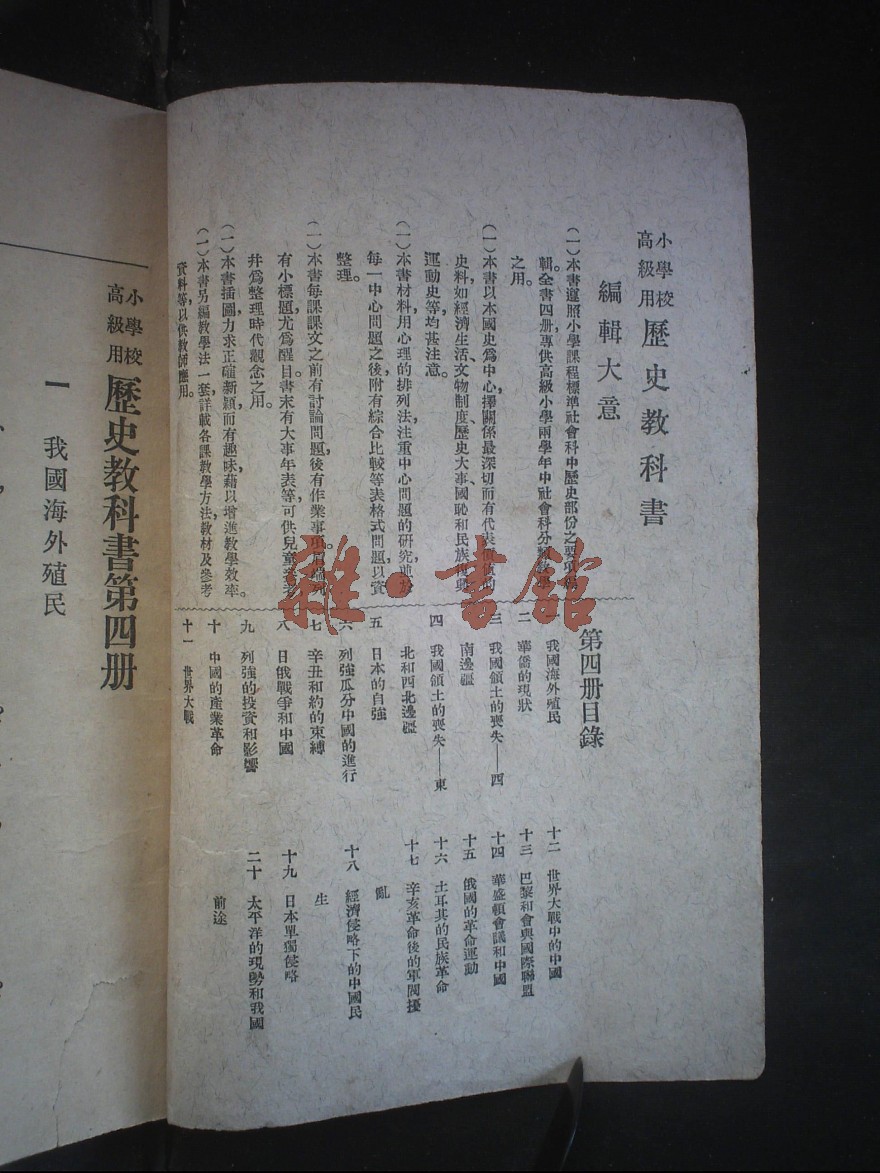 小學校
高級用
歷史教科書
編輯大意
(一)本書遵照小學課程標準社會科中歷史部份之要項編
輯。全書四册,專供高級小學兩學年中社會科分類教學
之用。
(一)本書以本國史爲中心,擇關係最深切而有代表價值的
史料,如經濟生活、文物制度、歷史大事、國恥和民族
運動史等,均甚注意。
(一)本書材料用心理的排列法,注重中心問題的研究,
每一中心問題之後,附有綜合比較等表格式問題,以資
整理。
(一)本書每課課文之前有討論問題,後有作業事項,
有小標題,尤爲醒目。書末有大事年表等,可供兒童參考
幷爲整理時代觀念之用。
(一)本書插圖力求正確新穎,而有趣味,藉以增進教學效率。
(一)本書另編教學法一套,詳載各課教學方法、教材及參考
資料等,以供教師應用。
第四册目錄
一 我國海外殖民
二 華僑的現狀
三 我國領土的喪失——西
南邊疆
四 我國領土的喪失——東
北和西北邊疆
五 日本的自強
六 列強瓜分中國的進行
七 辛丑和約的束縛
八 日俄戰爭和中國
九 列強的投資和影響
十 中國的產業革命
十一 世界大戰
十二 世界大戰中的中國
十三 巴黎和會與國際聯盟
十四 華盛頓會議和中國
十五 俄國的革命運動
十六 土耳其的民族革命
十七 辛亥革命後的軍閥擾
亂
十八 經濟侵略下的中國民
生
十九 日本單獨侵略
二十 太平洋的現勢和我國
前途
小學校
高級用
歷史教科書第四册
一 我國海外殖民
雜·書館